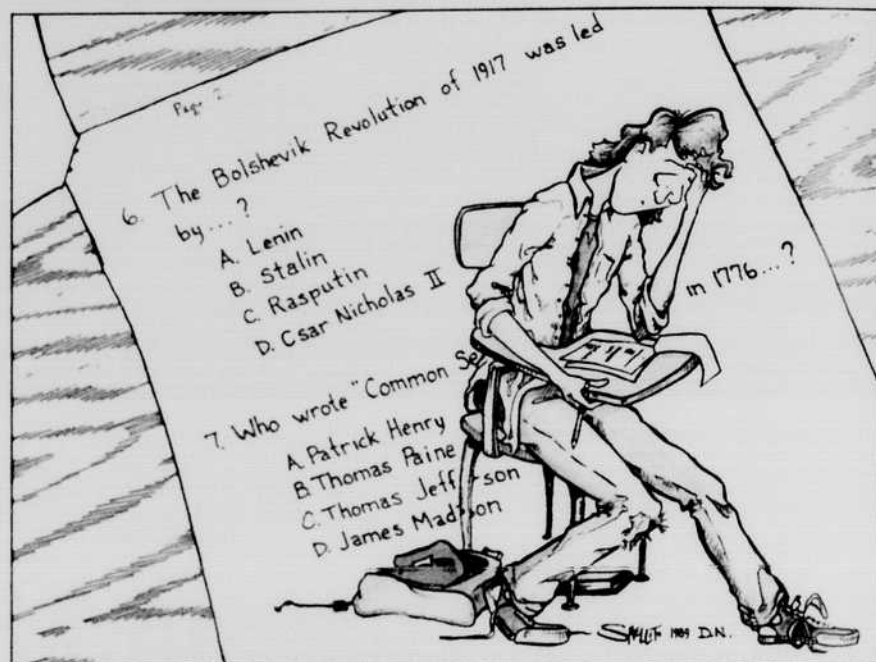 Page 2
6. The Bolshevik Revolution of 1917 was led
by....?
A. Lenin
B. Stalin
C. Rasputin
D. Csar Nicholas II
7. Who wrote "Common Se in 1776...?
A. Patrick Henry
B. Thomas Paine
C. Thomas Jefferson
D. James Madison
1989 D.N.